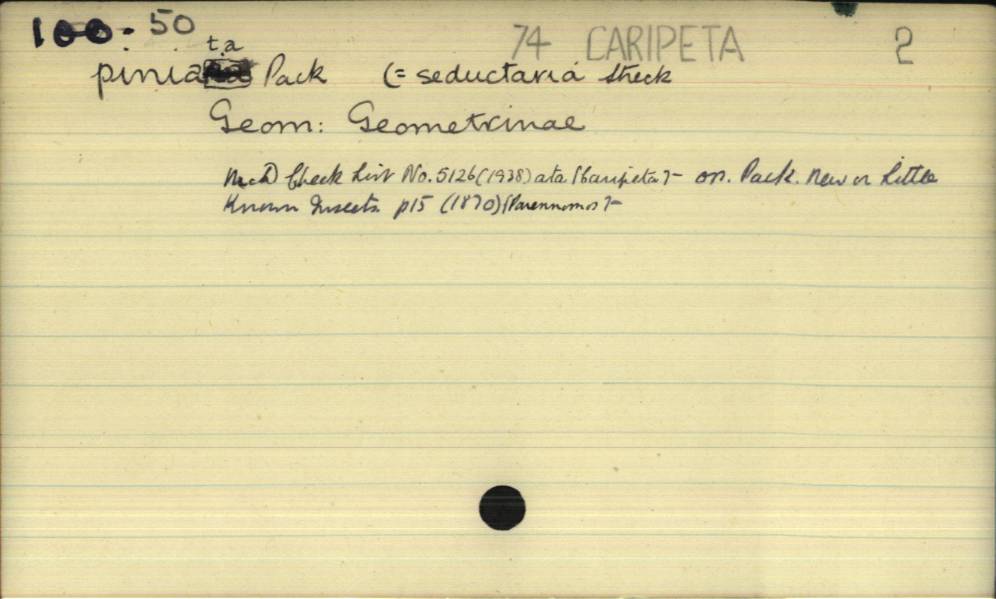 100. 50 74 CARIPETA 2
piniata Pack (= seductaria Streck
Geom: Geometrinae
McD Check List No. 5126 (1938) ata [Caripeta] - on. Pack. New or Little
Known Insects p15 (1870) [Parennomos] -